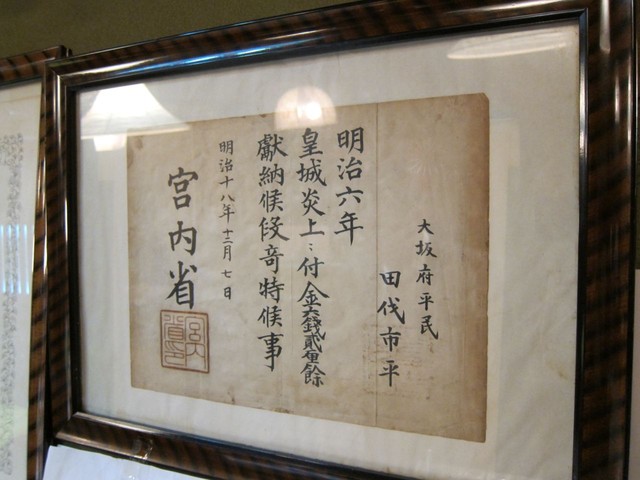 大坂府平民
田伐市平
明治六年
皇城炎上ニ付金六錢貳厘餘
獻納候段奇特候事
明治十八年十二月七日
宮内省
宮内省印